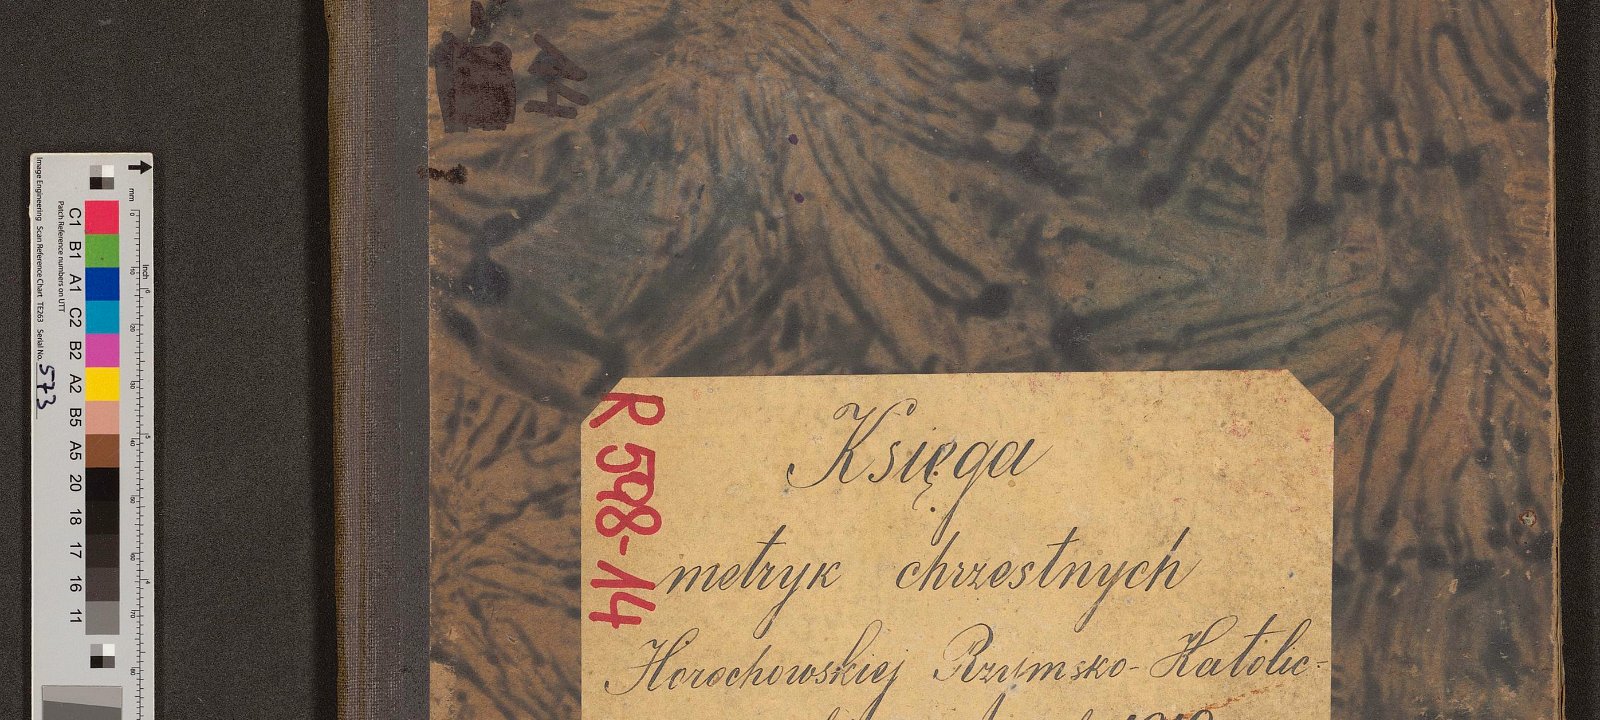 Image Engineering Scan Reference Chart TE263 Serial No. 573
Patch Reference numbers on UTT
mm
inch
C1
B1
A1
C2
B2
A2
B5
A5
20
18
17
16
11
14
R 598-14
Księga
metryk chrzestnych
Horochowskiej Rzymsko-Katolic-